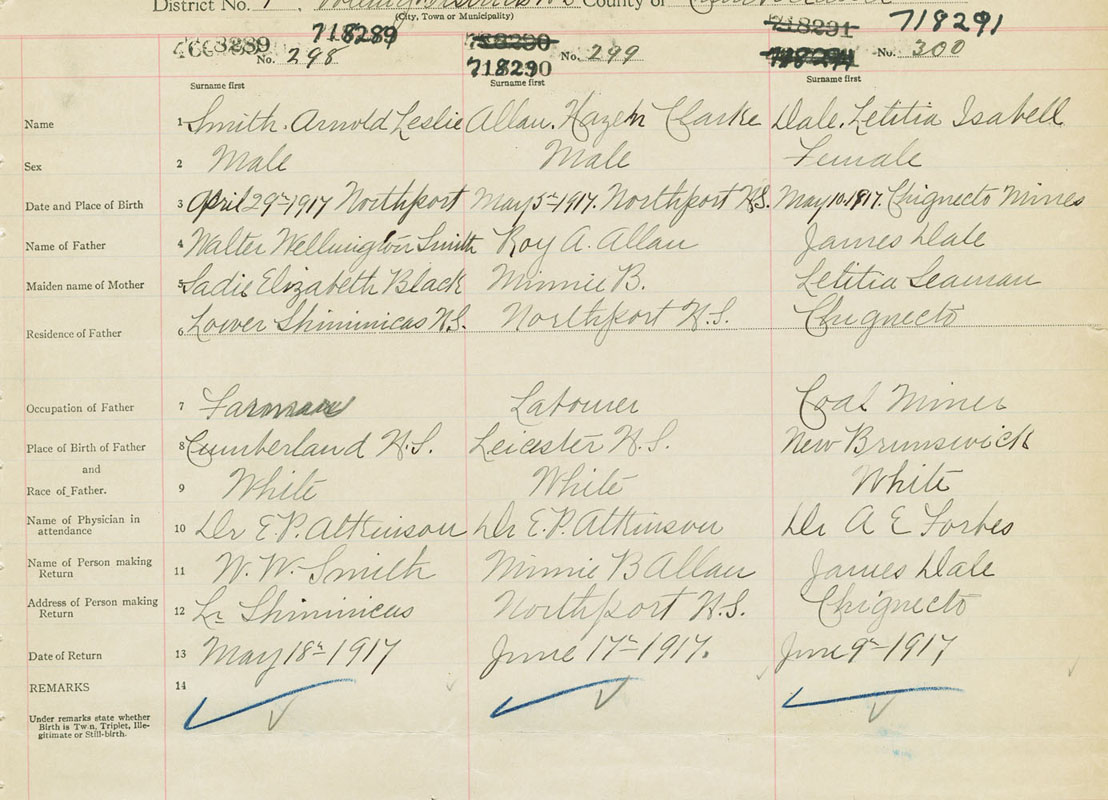 District No. 1, County of
(City, Town or Municipality)
718289 718290 718291 718291
No. 298 718290 No. 299 No. 300
Surname first Surname first Surname first
Name 1 Smith. Arnold Leslie Allan. Hazen Clarke Dale. Letitia Isabell
Sex 2 Male Male Female
Date and Place of Birth 3 April 29th 1917 Northport May 5th 1917. Northport N.S. May 10. 1917. Chignecto Mines
Name of Father 4 Walter Wellington Smith Roy A. Allan James Dale
Maiden name of Mother 5 Sadie Elizabeth Black Minnie B. Letitia Seaman
Residence of Father 6 Lower Shinimicas N.S. Northport N.S. Chignecto
Occupation of Father 7 Labourer Coal Miner
Place of Birth of Father 8 Cumberland N.S. Leicester N.S. New Brunswick
and
Race of Father. 9 White White White
Name of Physician in attendance 10 Dr E.P. Atkinson Dr E.P. Atkinson Dr A E Forbes
Name of Person making Return 11 W. W. Smith Minnie B Allan James Dale
Address of Person making Return 12 Lr Shinimicas Northport N.S. Chignecto
Date of Return 13 May 18th 1917 June 17th 1917. June 9th 1917
REMARKS 14
Under remarks state whether
Birth is Twin, Triplet, Ille-
gitimate or Still-birth.